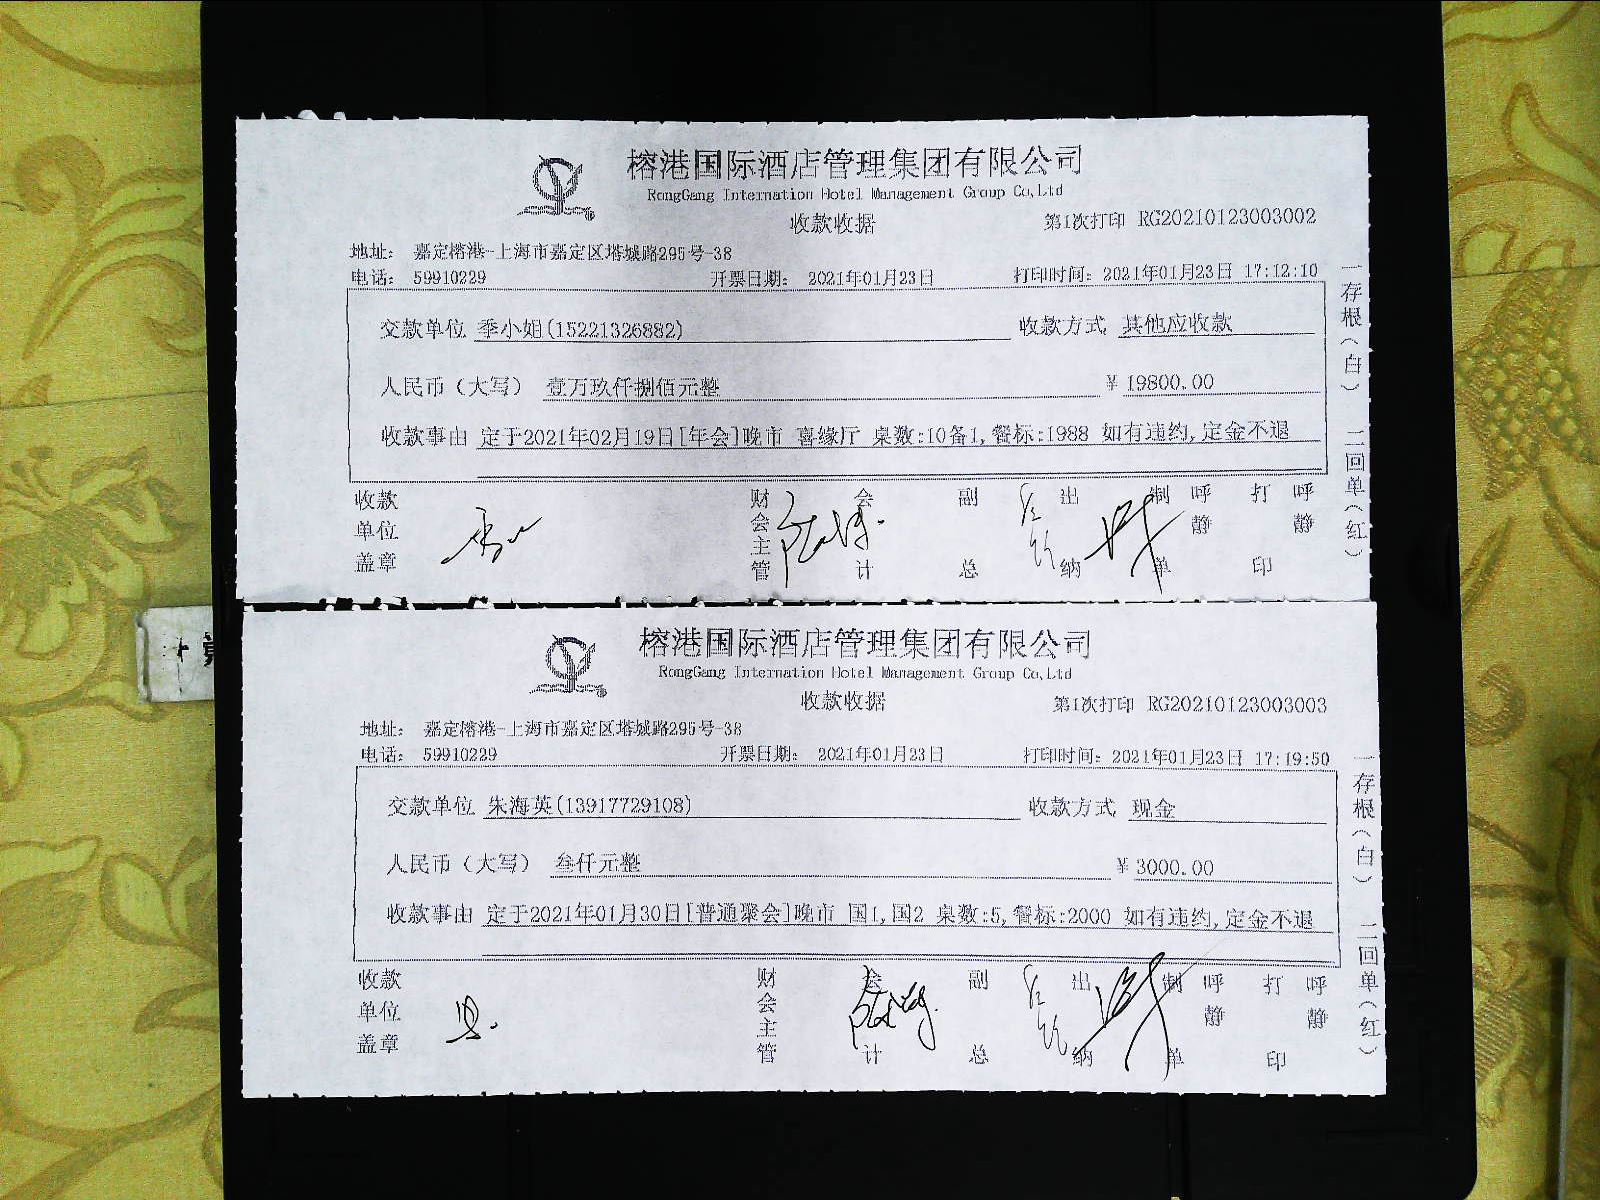 榕港国际酒店管理集团有限公司
RongGang Internation Hotel Management Group Co,Ltd
收款收据
第1次打印 RG20210123003002
地址： 嘉定榕港-上海市嘉定区塔城路295号-38
电话： 59910229 开票日期： 2021年01月23日 打印时间：2021年01月23日 17:12:10
交款单位 季小姐(15221326882) 收款方式 其他应收款
人民币（大写） 壹万玖仟捌佰元整 ￥19800.00
收款事由 定于2021年02月19日[年会]晚市 喜缘厅 桌数:10备1,餐标:1988 如有违约,定金不退
收款单位盖章 财会主管 会计 副总 出纳 制单 呼静 打印 呼静
一存根（白） 二回单（红）
榕港国际酒店管理集团有限公司
RongGang Internation Hotel Management Group Co,Ltd
收款收据
第1次打印 RG20210123003003
地址： 嘉定榕港-上海市嘉定区塔城路295号-38
电话： 59910229 开票日期： 2021年01月23日 打印时间：2021年01月23日 17:19:50
交款单位 朱海英(13917729108) 收款方式 现金
人民币（大写） 叁仟元整 ￥3000.00
收款事由 定于2021年01月30日[普通聚会]晚市 国1,国2 桌数:5,餐标:2000 如有违约,定金不退
收款单位盖章 财会主管 会计 副总 出纳 制单 呼静 打印 呼静
一存根（白） 二回单（红）